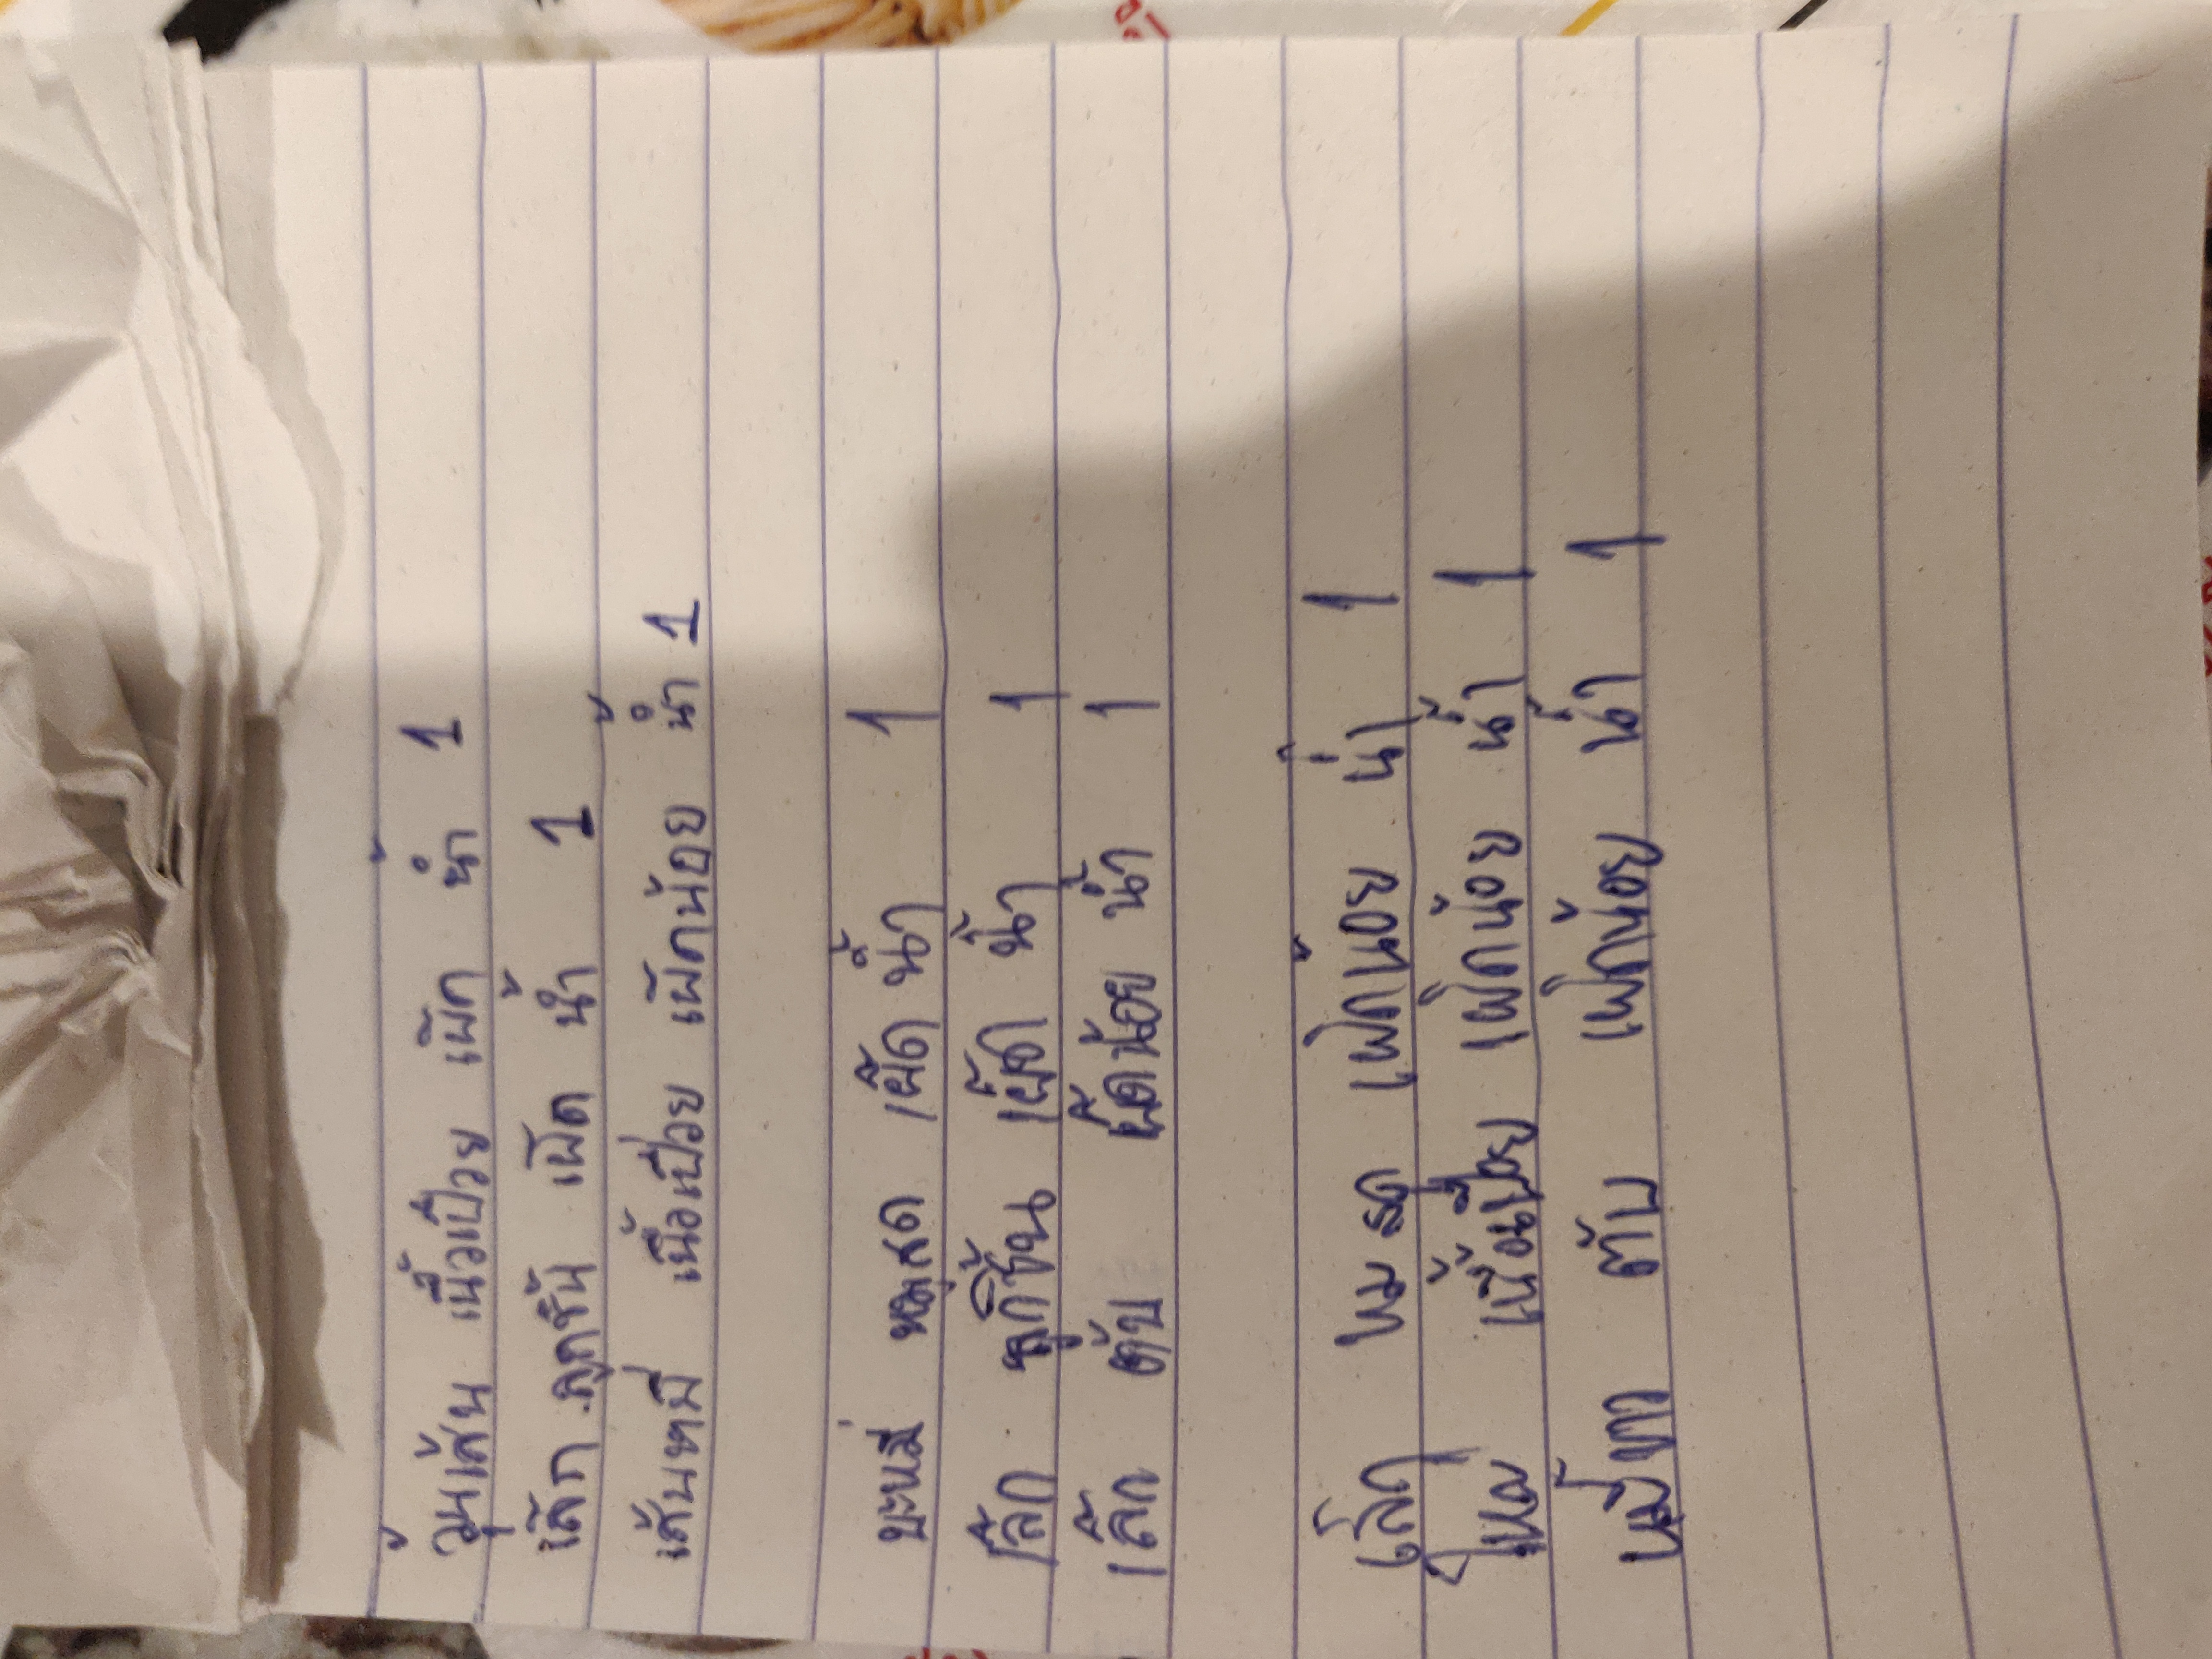 วุ้นเส้น เนื้อเปื่อย เผ็ด น้ำ 1
เล็ก ลูกชิ้น เผ็ด น้ำ 1
เส้นหมี่ เนื้อเปื่อย เผ็ดน้อย น้ำ 1
บะหมี่ หมูสด เผ็ด น้ำ 1
เล็ก ลูกชิ้น เผ็ด น้ำ 1
เล็ก ตับ เผ็ดน้อย น้ำ 1
เล็ก หมูสด เผ็ดน้อย น้ำ 1
ใหญ่ เนื้อเปื่อย เผ็ดน้อย น้ำ 1
หมี่ขาว ตับ เผ็ดน้อย น้ำ 1